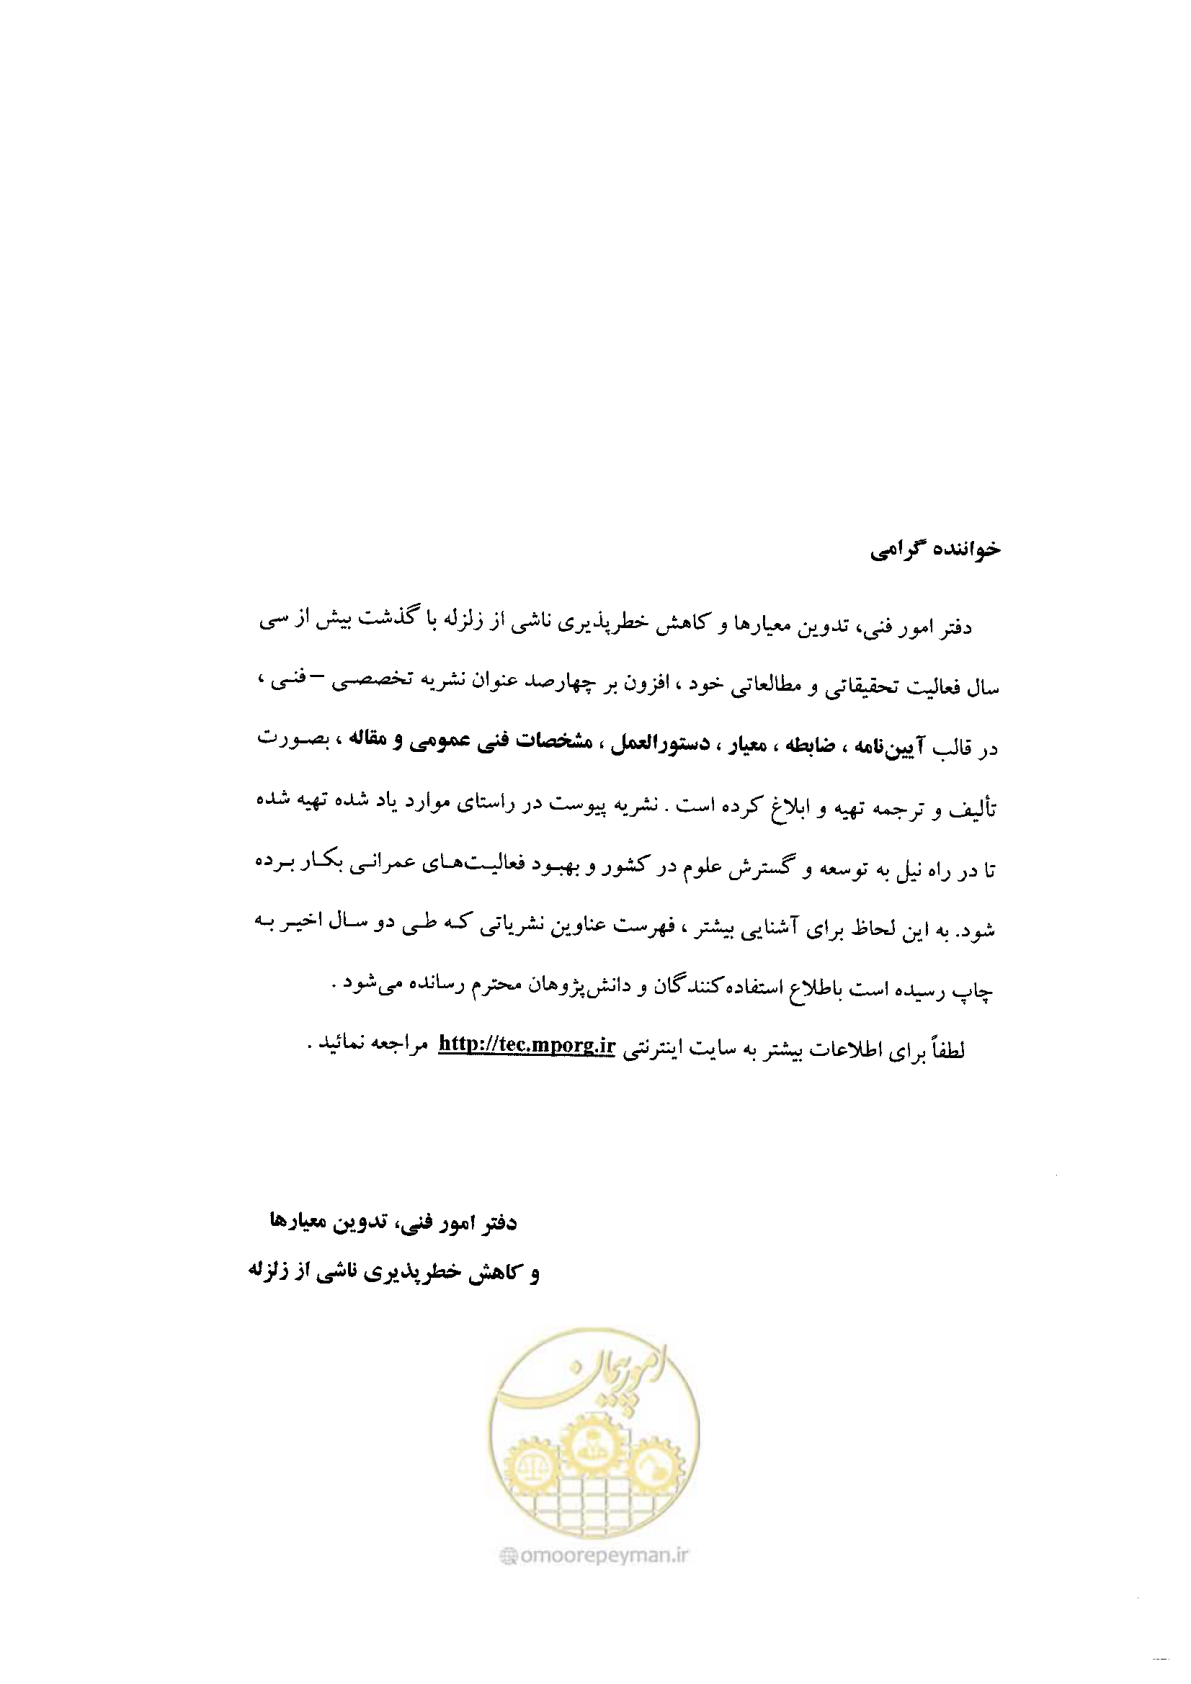 خواننده گرامی
دفتر امور فنی، تدوین معیارها و کاهش خطرپذیری ناشی از زلزله با گذشت بیش از سی
سال فعالیت تحقیقاتی و مطالعاتی خود ، افزون بر چهارصد عنوان نشریه تخصصـی –فنـی ،
در قالب آیین‌نامه ، ضابطه ، معیار ، دستورالعمل ، مشخصات فنی عمومی و مقاله ، بصـورت
تألیف و ترجمه تهیه و ابلاغ کرده است . نشریه پیوست در راستای موارد یاد شده تهیه شده
تا در راه نیل به توسعه و گسترش علوم در کشور و بهبود فعالیـت‌هـای عمرانـی بکـار بـرده
شود. به این لحاظ برای آشنایی بیشتر ، فهرست عناوین نشریاتی کـه طـی دو سـال اخیـر بـه
چاپ رسیده است باطلاع استفاده‌کنندگان و دانش‌پژوهان محترم رسانده می‌شود .
لطفاً برای اطلاعات بیشتر به سایت اینترنتی http://tec.mporg.ir مراجعه نمائید .
دفتر امور فنی، تدوین معیارها
و کاهش خطرپذیری ناشی از زلزله
امور پیمان
omoorepeyman.ir